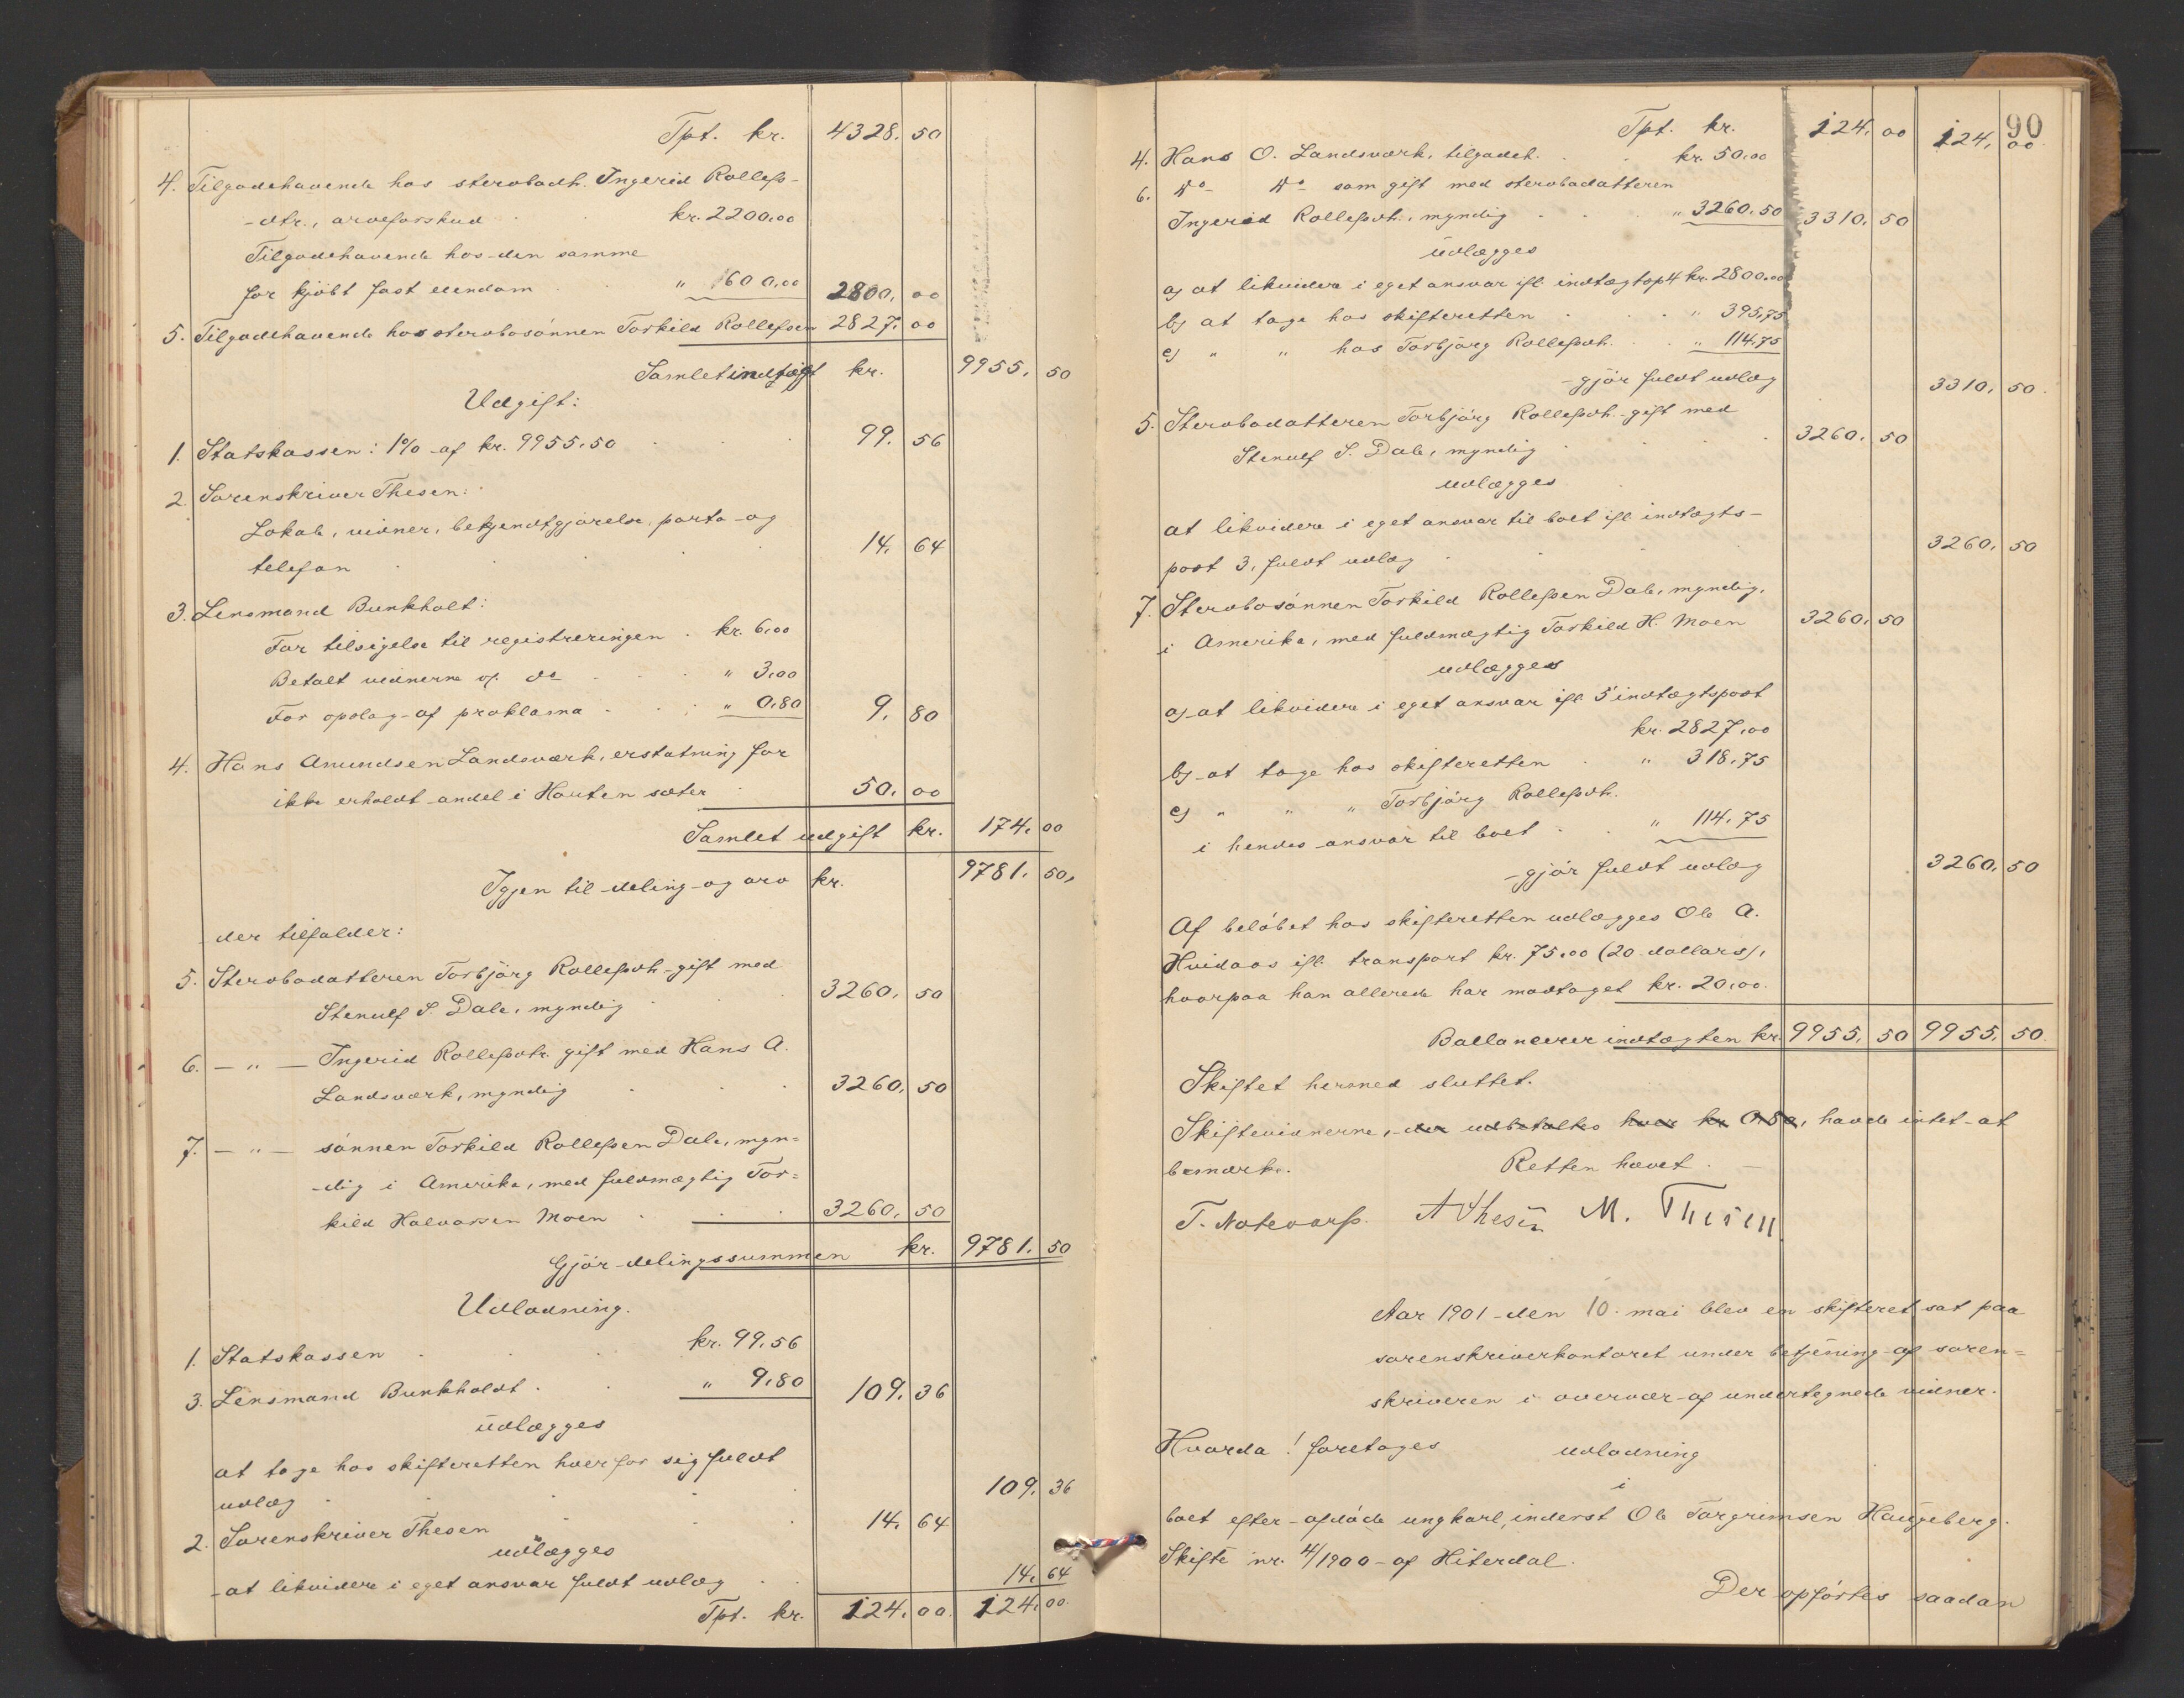 Tpt. kr. 4328. 50
4. Tilgodehavende hos stervbodh. Ingerid Rollefs-
-dtr., arveforskud kr. 2200,00
Tilgodehavende hos den samme
for kjøbt fast eiendom " 600,00 2800. 00
5. Tilgodehavende hos stervbosønnen Torkild Rollefsen 2827. 00
Samlet indtægt kr. 9955. 50
Udgift:
1. Statskassen: 1% af kr. 9955.50 99. 56
2. Sorenskriver Thesen:
Lokale, vidner, bekjendtgjørelse, porto og
telefon 14. 64
3. Lensmand Bunkholt:
For tilsigelse til registreringen kr. 6,00
Betalt vidnerne v. do " 3,00
For opslag af proklama " 0,80 9. 80
4. Hans Amundsen Landsværk, erstatning for
ikke erholdt andel i Houten sæter 50. 00
Samlet udgift kr. 174. 00
Igjen til deling og arv kr. 9781. 50,
der tilfalder:
5. Stervbodatteren Torbjørg Rollefsdh. gift med
Stenulf S. Dale, myndig 3260. 50
6. — " — Ingerid Rollefsdtr. gift med Hans A.
Landsværk, myndig 3260. 50
7. — " — sønnen Torkild Rollefsen Dale, myn=
-dig i Amerika, med fuldmægtig Tor=
kild Halvorsen Moen 3260. 50
Gjør delingssummen kr. 9781. 50
Udlodning.
1. Statskassen kr. 99.56
3. Lensmand Bunkholdt " 9.80 109. 36
udlægges
at tage hos skifteretten hver for sig fuldt
udlæg 109. 36
2. Sorenskriver Thesen 14. 64
udlægges
at likvidere i eget ansvar fuldt udlæg 14. 64
Tpt. kr. 124. 00. 124. 00.
90
Tpt. kr. 124. 00 124. 00.
4. Hans O. Landsværk, tilgodeh. kr. 50.00
6. Do Do som gift med stervbodatteren
Ingerid Rollefsdh., myndig " 3260.50 3310. 50
udlægges
a) at likvidere i eget ansvar ifl. indtægtsp 4 kr. 2800.00
b) at tage hos skifteretten " 395,75
c) " " hos Torbjørg Rollefsdh. " 114.75
-gjør fuldt udlæg 3310. 50.
5. Stervbodatteren Torbjørg Rollefsdh. gift med
Stenulf S. Dale, myndig 3260. 50
udlægges
at likvidere i eget ansvar til boet ifl. indtægts-
post 3. fuldt udlæg 3260. 50
7. Stervbosønnen Torkild Rollefsen Dale, myndig,
i Amerika, med fuldmægtig Torkild H. Moen 3260. 50
udlægges
a) at likvidere i eget ansvar ifl. 5 indtægtspost
kr. 2827.00
b) at tage hos skifteretten " 318.75
c) " " " Torbjørg Rollefsdh.
i hendes ansvar til boet " 114.75
-gjør fuldt udlæg 3260. 50
Af beløbet hos skifteretten udlægges Ole A.
Hvidaas ifl. transport kr. 75.00 (20 dollars),
hvorpaa han allerede har modtaget kr. 20,00.
Ballancerer indtægten kr. 9955. 50 9955. 50.
Skiftet hermed sluttet.
Skiftevidnerne, der udbetaltes hver kr 0.50, havde intet at
bemærke. Retten hævet. —
T. Notevarp. AThesen M. Thesen
Aar 1901 den 10. mai blev en skifteret sat paa
sorenskriverkontoret under betjening af soren=
skriveren i overvær af undertegnede vidner.
Hvorda! foretages udlodning
i
boet efter afdøde ungkarl, inderst Ole Torgrimsen Haugeberg.
Skifte nr. 4/1900 af Hiterdal.
Der opførtes saadan